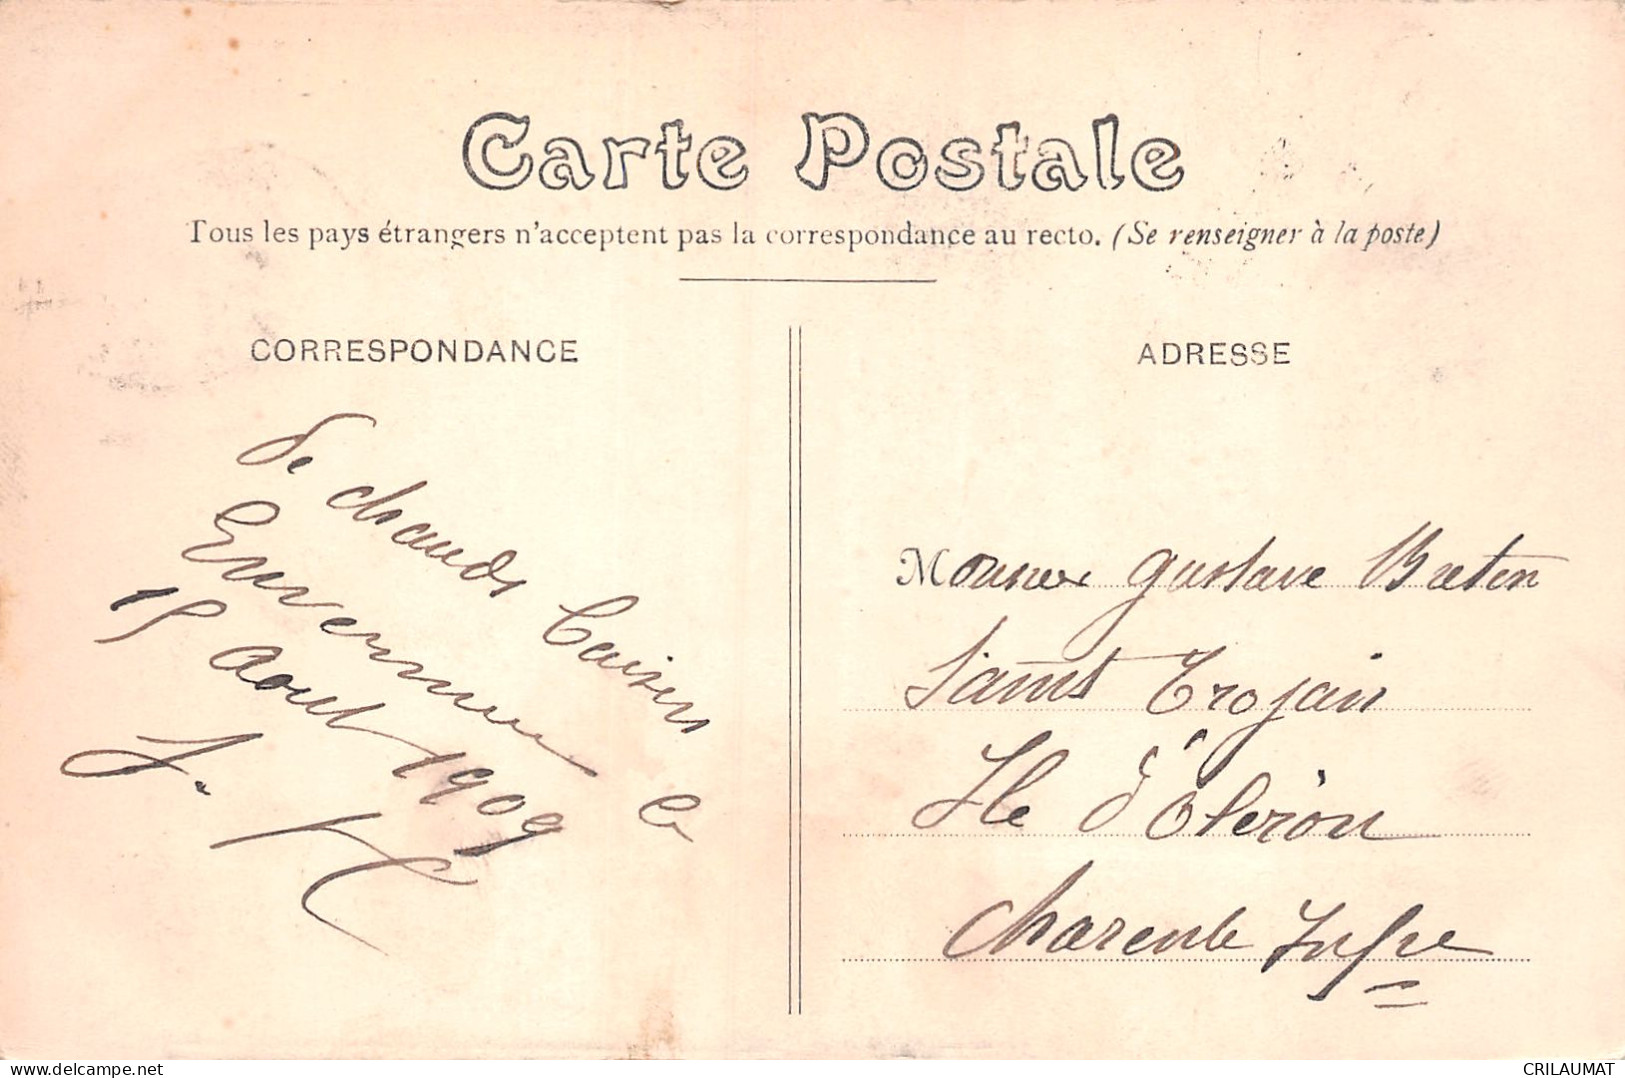 Carte Postale
Tous les pays étrangers n'acceptent pas la correspondance au recto. (Se renseigner à la poste)
CORRESPONDANCE
De chauds baisers
le
15 Aout 1909
ADRESSE
Monsieur Gustave Breton
Saint Trojan
Ile d'Oléron
Charente Infre
delcampe.net
CRILAUMAT